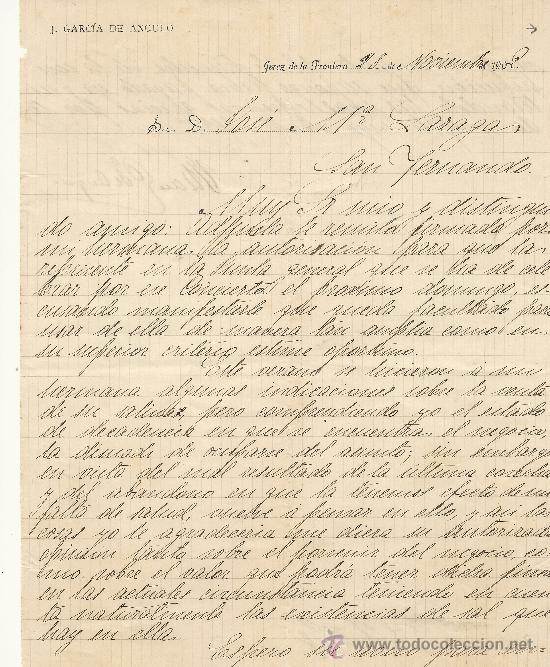 J. GARCÍA DE ANGULO
Jerez de la Frontera 28 de Noviembre 190
S. D. José Mª Lazaga
San Fernando
Muy Sr mio y distingui
do amigo: Adjunta le remito firmada por
mi hermana la autorizacion para que la
represente en la Junta general que se ha de cele
brar por en Comierto el proximo domingo, es
cusando manifestarle que queda facultado para
usar de ella de manera tan amplia como en
su superior criterio estime oportuno.
Este verano se hicieron a mi
hermana algunas indicaciones sobre la venta
de su salina, pero comprendiendo yo el estado
de decadencia en que se encuentra el negocio,
la disuadi de ocuparse del asunto; sin embargo
en vista del mal resultado de la última cosecha
y del abandono en que la tenemos efecto de mi
falta de salud, vuelve a pensar en ello, y asi las
cosas yo le agradeceria que diera su autorizada
opinion tanto sobre el porvenir del negocio, co
mo sobre el valor que podria tener dicha finca
en las actuales circunstancia teniendo en cuen
ta naturalmente las existencias de sal que
hay en ella.
Espero
todocoleccion
www.todocoleccion.net